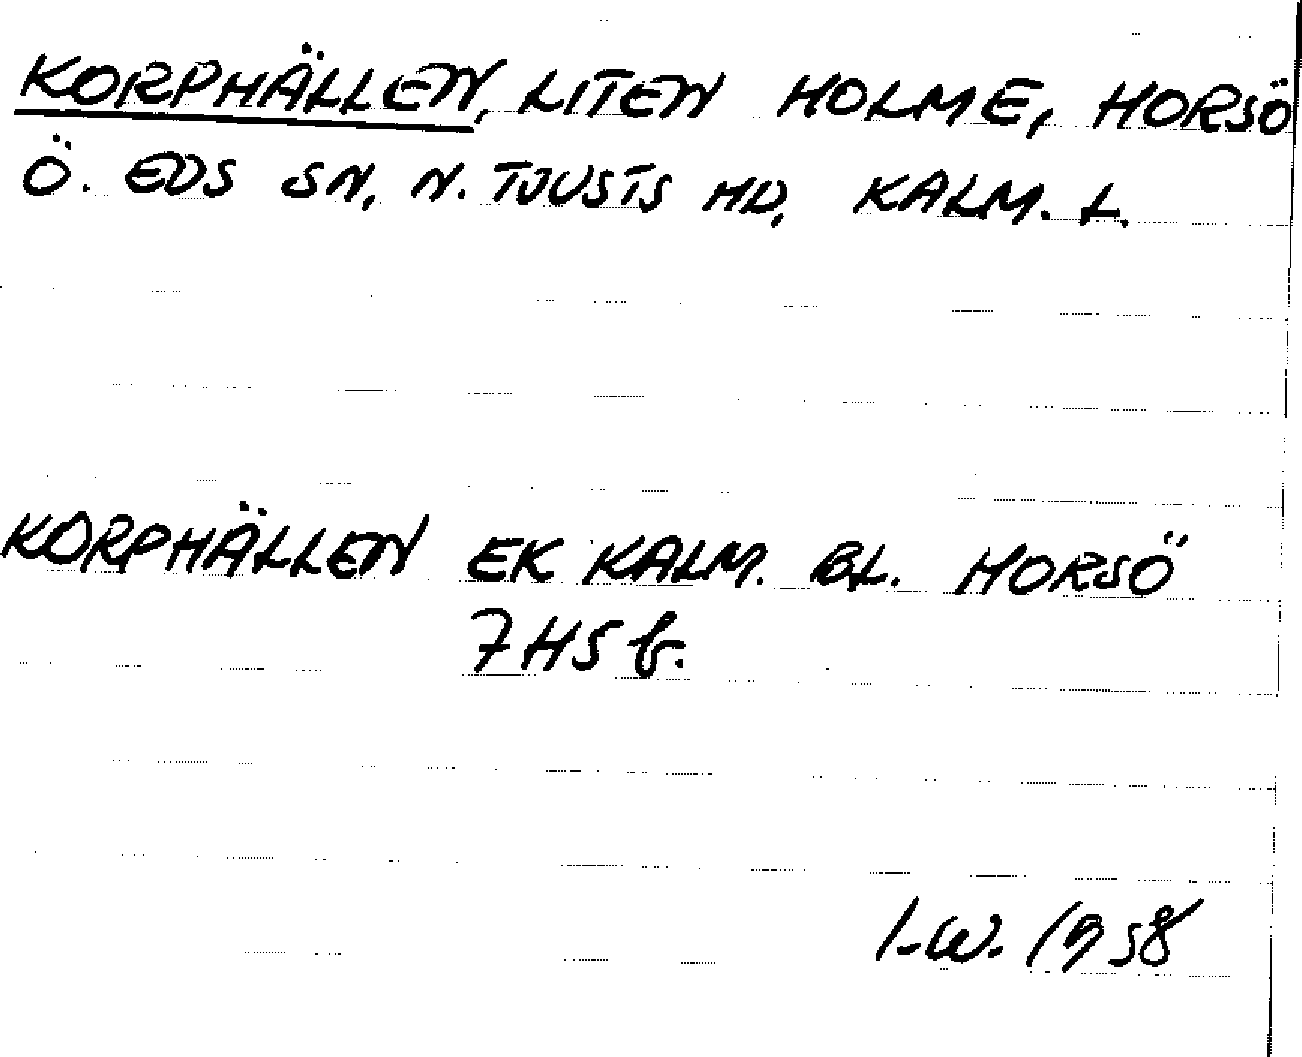 KORPHÄLLEN, LITEN HOLME, HORSÖ
Ö. EDS SN, N. TJUSTS HD, KALM. L.
KORPHÄLLEN EK KALM. BL. HORSÖ
7H5b.
I.W. 1958